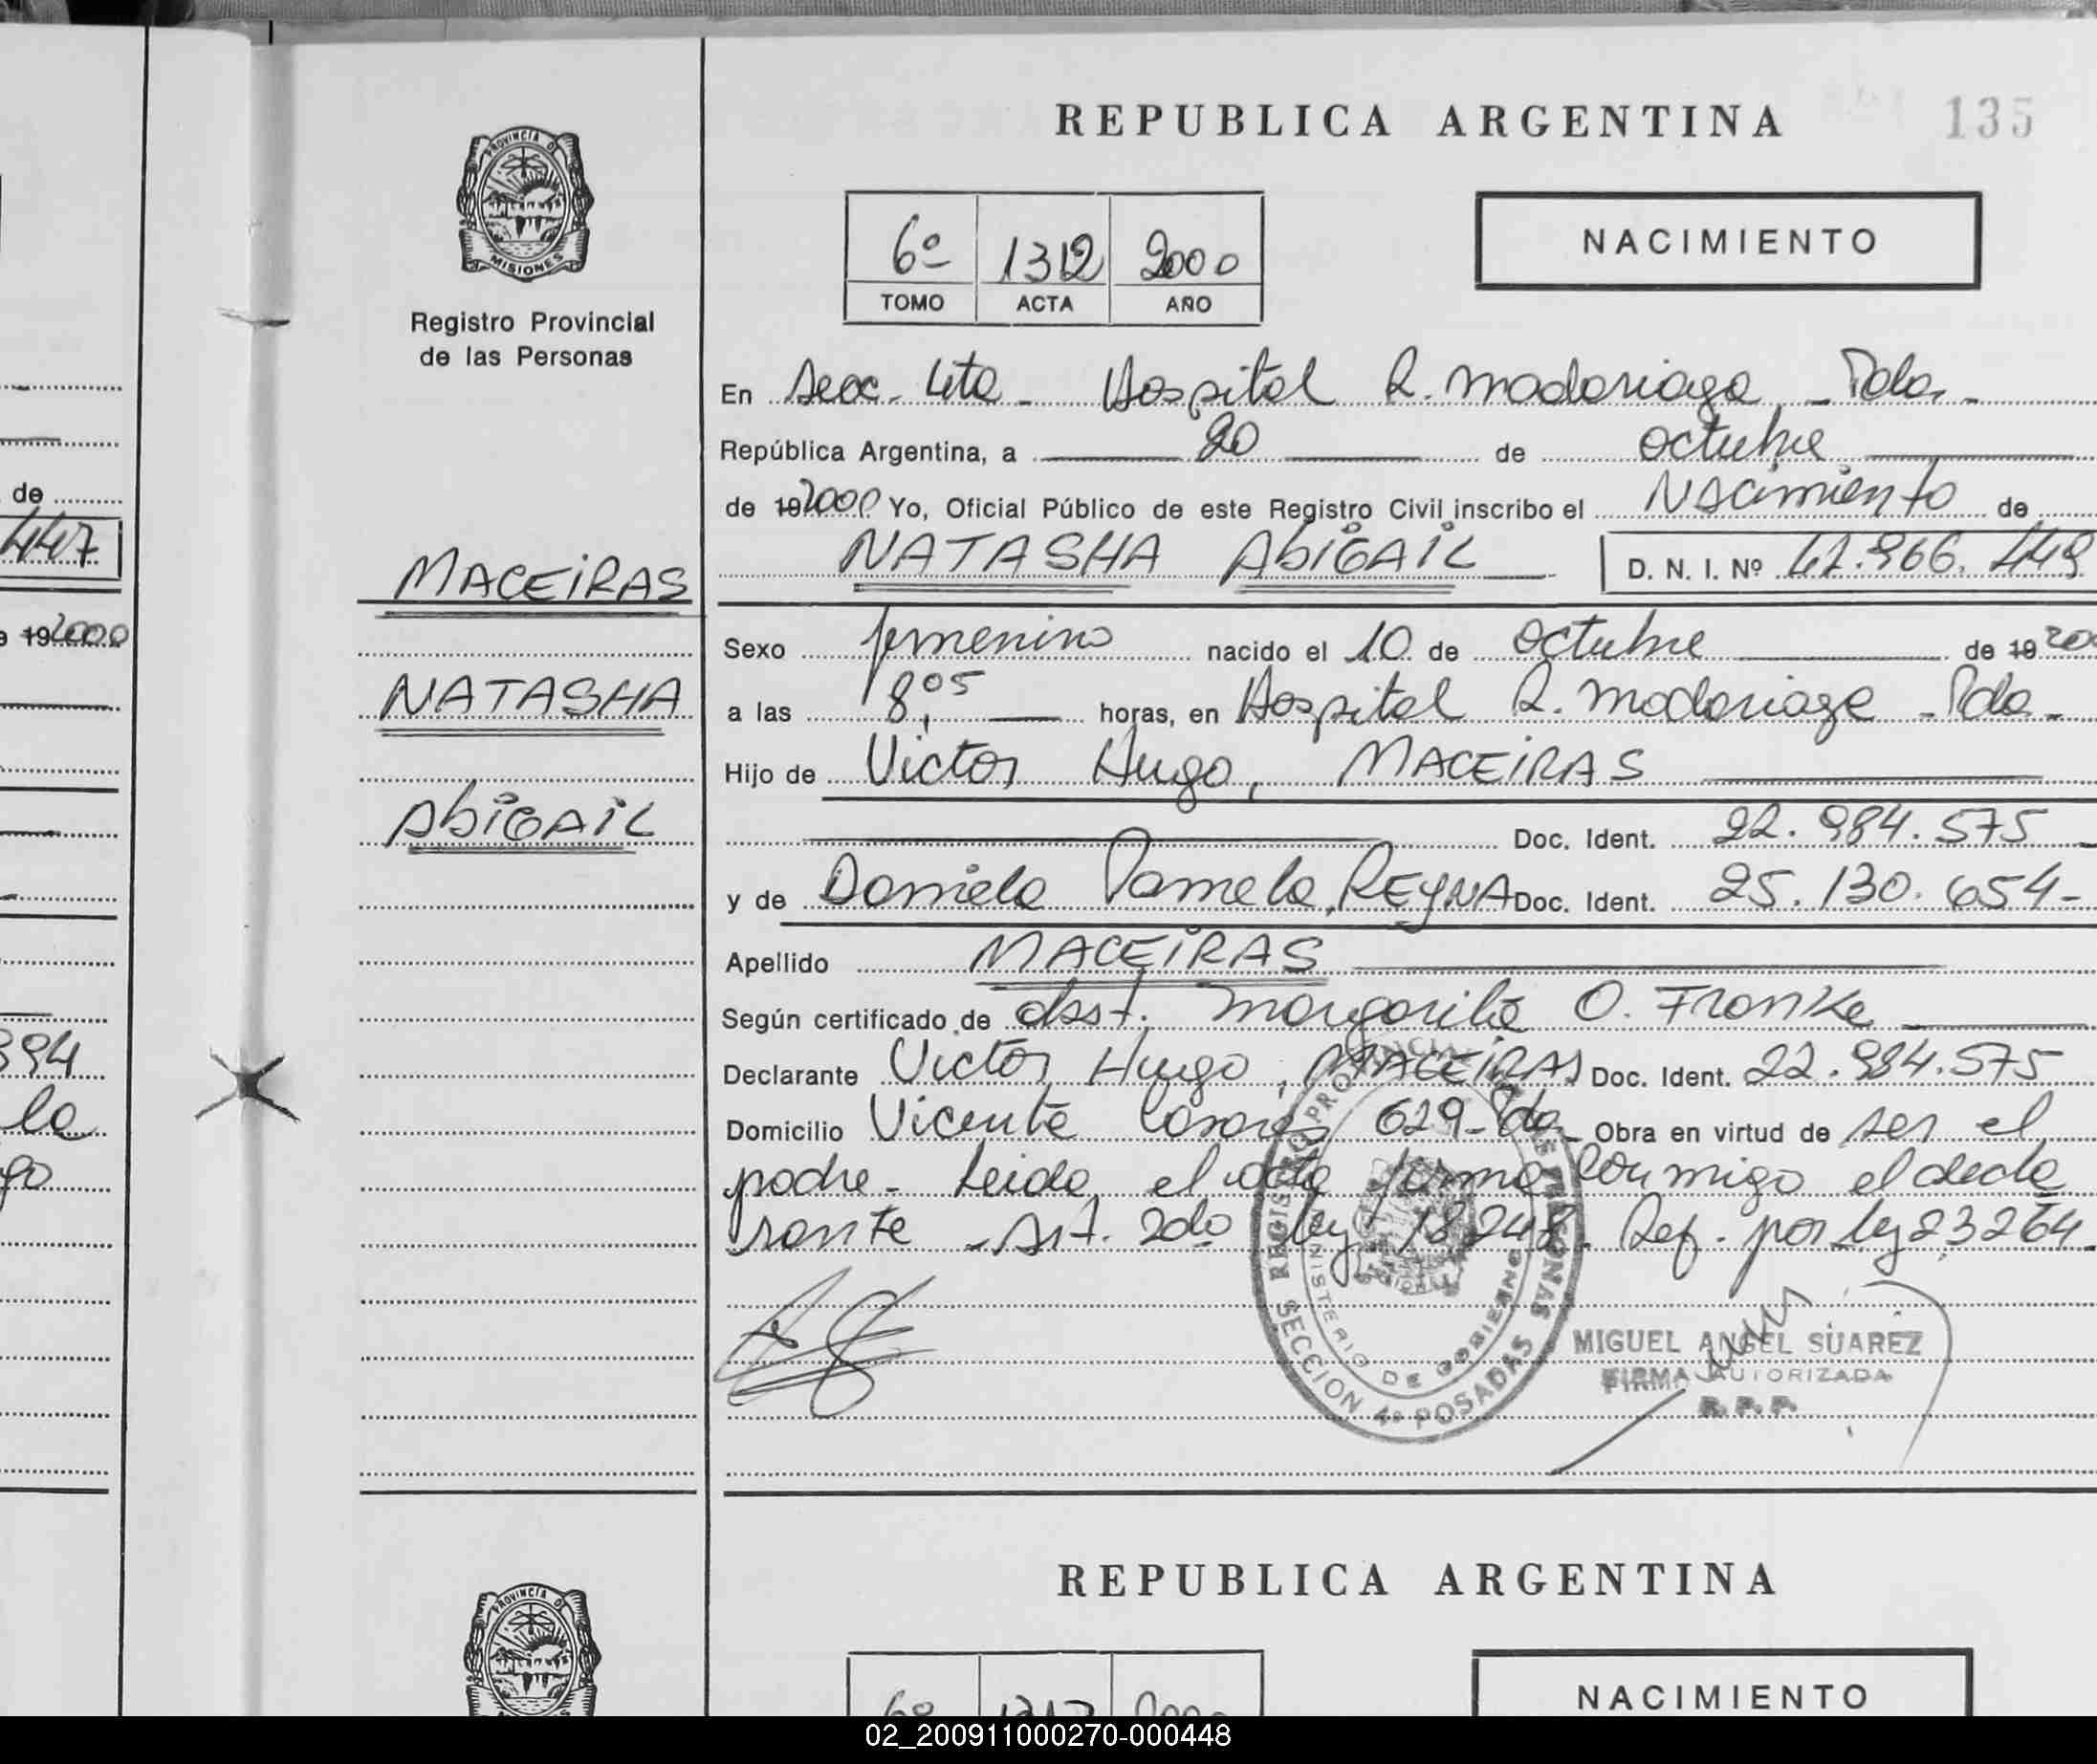 REPUBLICA ARGENTINA
135
PROVINCIA DE
MISIONES
Registro Provincial
de las Personas
6º 1312 2000
TOMO ACTA AÑO
NACIMIENTO
En Secc. 4ta - Hospital R. Madariaga - Pdas.
República Argentina, a 20 de octubre
de 192000 Yo, Oficial Público de este Registro Civil inscribo el Nacimiento de
NATASHA AbiGAiL D. N. I. Nº 42.966.449
MACEiRAS
NATASHA
AbiGAiL
Sexo femenino nacido el 10 de octubre de 19 200
a las 8,05 horas, en Hospital R. Madariaga - Pda -
Hijo de Victor Hugo, MACEiRAS
Doc. Ident. 22.984.575
y de Daniela Pamela, REYNA Doc. Ident. 25.130.654-
Apellido MACEiRAS
Según certificado de obst. Margarita O. Franke
Declarante Victor Hugo, MACEiRAS Doc. Ident. 22.984.575
Domicilio Vicente Casares 629- Pda - Obra en virtud de ser el
padre - Leida el acta firma conmigo el decla
rante - Art. 2do ley 18248. Ref. por ley 23264.
REGISTRO PROVINCIAL DE LAS PERSONAS
MINISTERIO DE GOBIERNO
SECCION 4º POSADAS
MIGUEL ANGEL SUAREZ
FIRMA AUTORIZADA
R. P. P.
de
447
192000
394
la
go
REPUBLICA ARGENTINA
PROVINCIA DE
NACIMIENTO
02_200911000270-000448